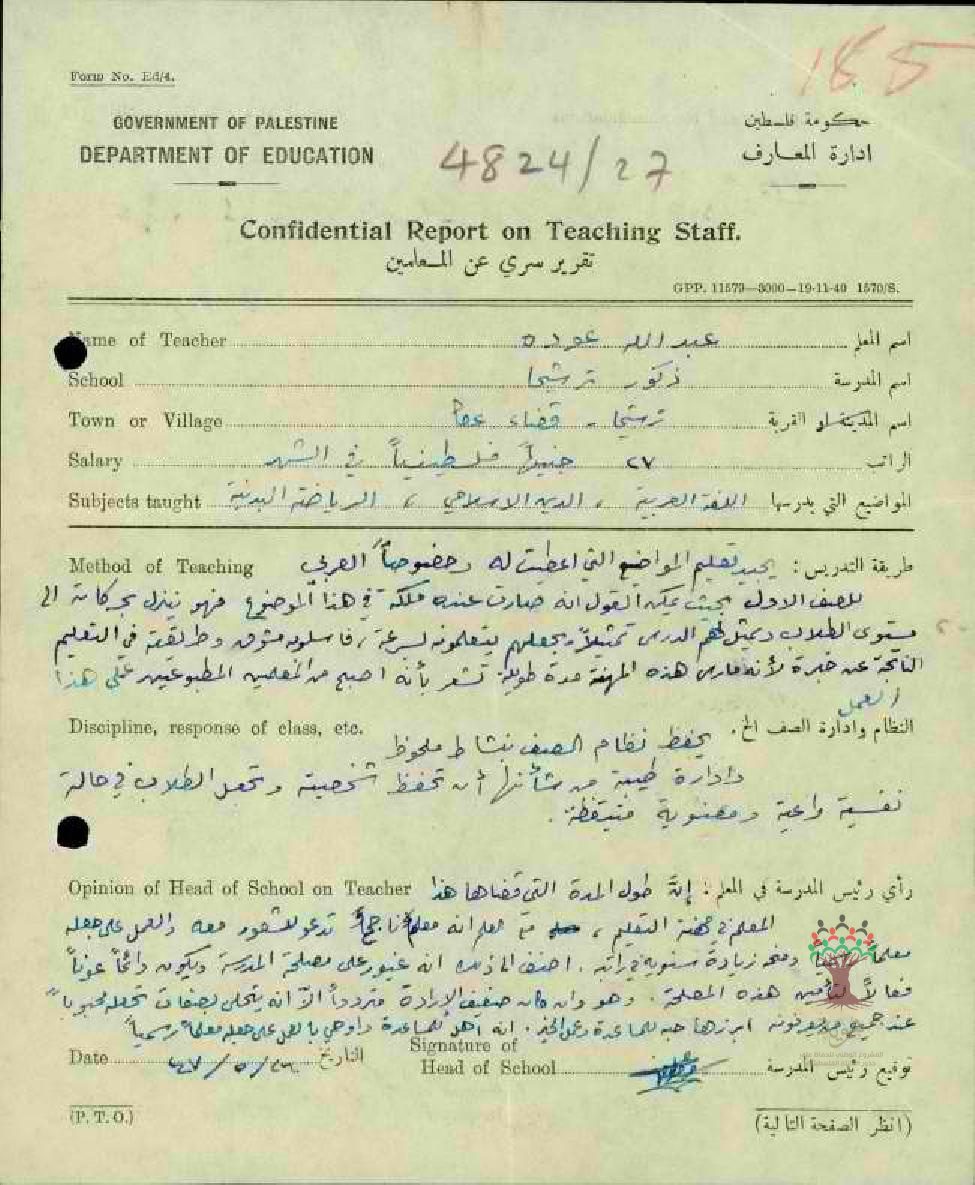 185
Form No. Ed/4.
GOVERNMENT OF PALESTINE
حكومة فلسطين
DEPARTMENT OF EDUCATION
ادارة المعارف
4824/27
Confidential Report on Teaching Staff.
تقرير سري عن المعلمين
GPP. 11579—3000—19-11-40 1570/S.
Name of Teacher عبد الله عوده اسم المعلم
School ذكور ترشيحا اسم المدرسة
Town or Village ترشيحا - قضاء عكا اسم المدينة او القرية
Salary ٢٧ جنيهاً فلسطينياً في الشهر الراتب
Subjects taught اللغة العربية ، الدين الاسلامي ، الرياضة البدنية المواضيع التي يدرسها
Method of Teaching يجيد تعليم المواضيع التي اعطيت له وخصوصاً العربي طريقة التدريس :
للصف الاول بحيث يمكن القول انه صارت عنده ملكة في هذا الموضوع فهو ينزل بحركاته الى
مستوى الطلاب ويمثل لهم الدرس تمثيلاً ويجعلهم يتعلمونه بسرعة ، فاسلوبه مشوق وطريقته في التعليم
الناتجة عن خبرة لأنه مارس هذه المهنة مدة طويلة تشعر بأنه اصبح من المعلمين المطبوعين على هذا
العمل
Discipline, response of class, etc. يحفظ نظام الصف بنشاط ملحوظ النظام وادارة الصف الخ.
وادارة طيبة من شأنها أن تحفظ شخصيته وتجعل الطلاب في حالة
نفسية واعية ومعنوية متيقظة .
Opinion of Head of School on Teacher إنّ طول المدة التي قضاها هذا رأي رئيس المدرسة في المعلم :
المعلم في مهنة التعليم ، مما جعل انه معلماً ناجحاً تدعو للشعور معه والعمل على جعله
معلماً ومنحه زيادة سنوية في راتبه . اضف الى ذلك انه غيور على مصلحة المدرسة ويكون دائماً عوناً
فعالاً لتأمين هذه المصلحة . وهو وان كان ضعيف الإرادة متردداً الاّ انه يتحلى بصفات تجعله محبوباً
عند جميع من يعرفونه ابرزها حبه للمساعدة وعمل الخير . انه أهل للمساعدة واوصي بالعمل على جعله معلماً رسمياً
Date ٤٧/٥/ التاريخ Signature of
Head of School توقيع رئيس المدرسة
(P. T. O.)
(انظر الصفحة التالية)